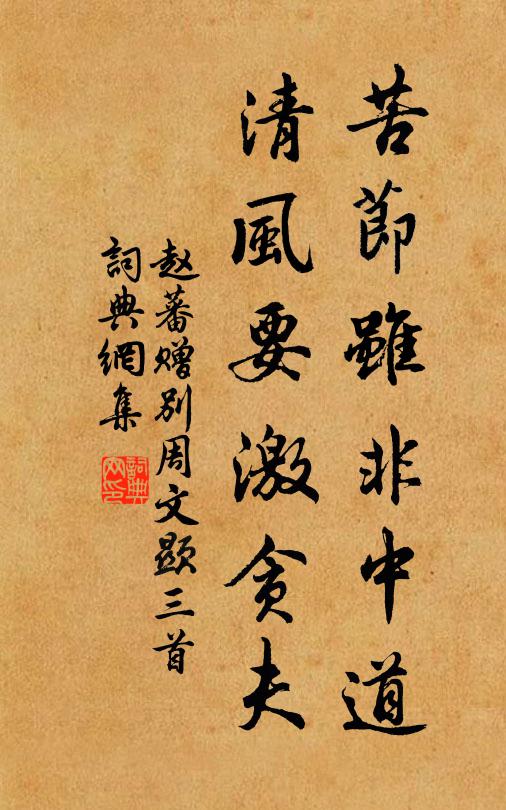 苦節雖非中道
清風要激貪夫
赵蕃赠别周文显三首
詞典網集
詞典
网印